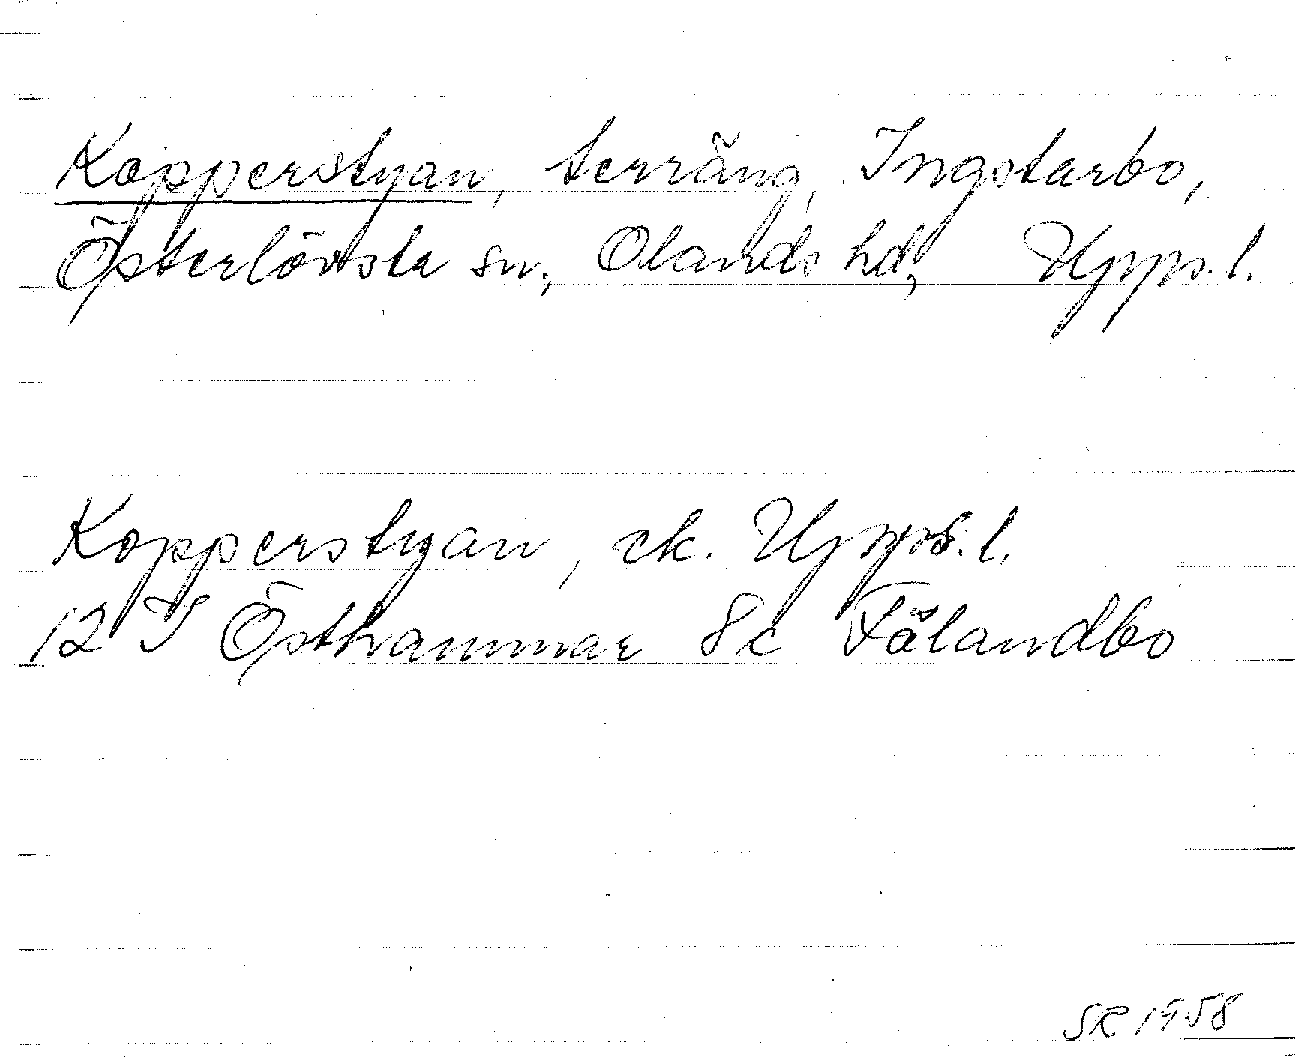 Kopperstyan, terräng, Ingstarbo,
Österlövsta sn, Olands hd, Upps. l.
Kopperstyan, ek. Upps. l.
12 I Östhammar 8c Fälandbo
SR 1958